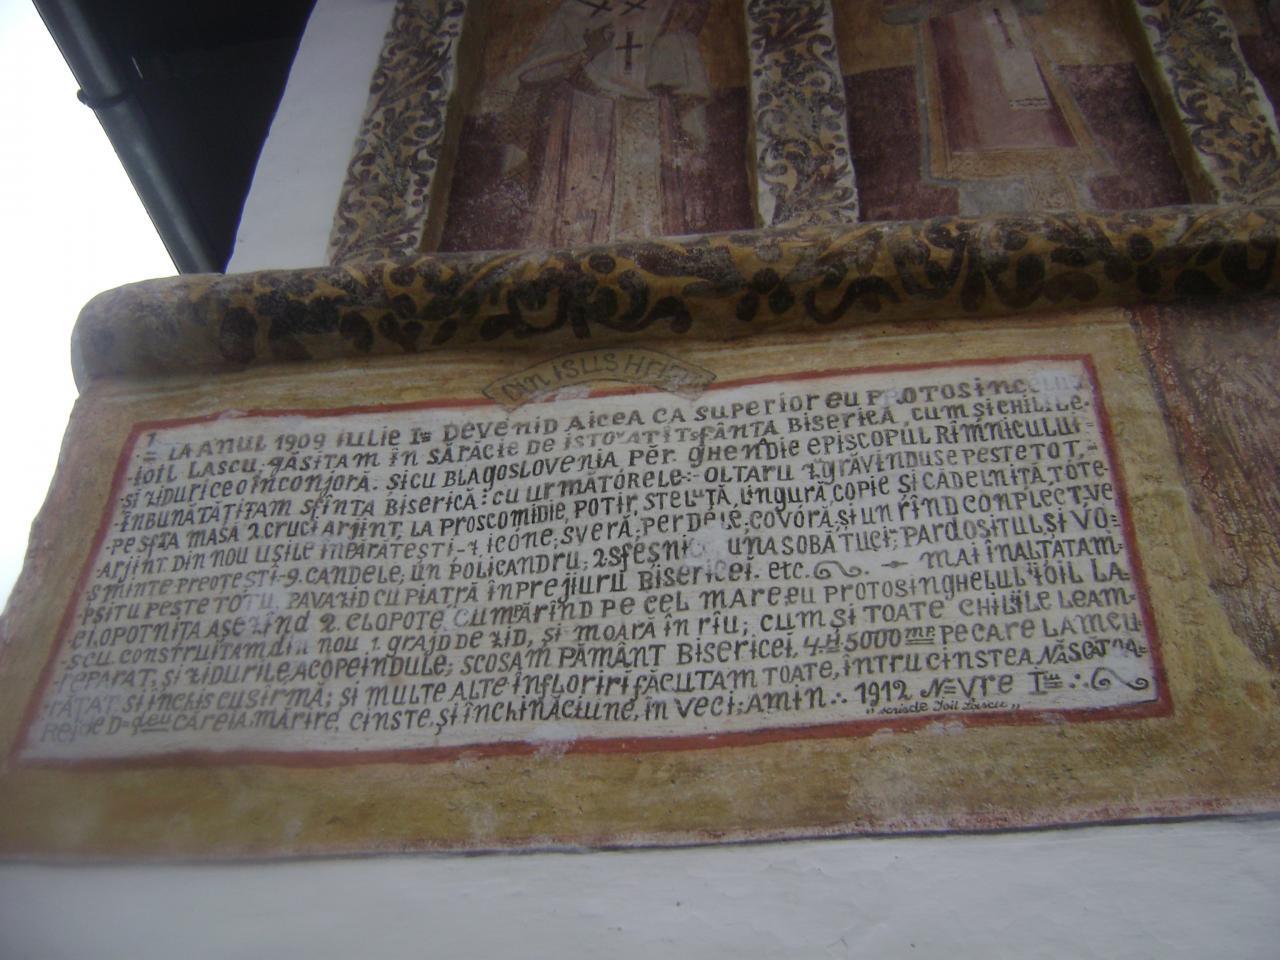 DIN ISUS HR
LA ANUL 1909 IULIE 1 DEVENID AICEA CA SUPERIOR EU PROTOSINCELUS
IOIL LASCU. GĂSITAM ÎN SĂRĂCIE DE ISTOVATITSFÂNTA BISERICĂ, CUM SI CHILILE-
-ȘI ZIDURICEOÎNCONJORĂ. SI CU BLAGOSLOVENIA PĂR. GHENĂDIE EPISCOPUL RÎMNICULUI-
-ÎNBUNĂTĂȚITAM SFÎNTA BISERICĂ: CU URMĂTORELE:- OLTARU ZGRĂVINDUSE PESTE TOT,
PE SFTA MASĂ 2. CRUCI ARJINT, LA PROSCOMIDIE, POTIR, STELUȚĂ, LINGURĂ, COPIE ȘI CĂDELNIȚĂ TÓTE-
ARJINT. DIN NOU UȘILE ÎMPĂRĂTEȘTI-7. ICÓNE; SVERĂ; PERDELE; COVÓRĂ, ȘI UN RÎND CONPLECT VE
SMINTE PREOȚEȘTI-9. CANDELE; UN POLICANDRU; 2 SFEȘNICI UNA SOBĂ TUCI; PARDOSITUL ȘI VO-
-PSITU PESTE TOTU. PAVAZID CU PIATRĂ ÎNPREJIURU BISERICEI. ETC. - MAI INĂLȚATAM
CLOPOTNIȚA AȘEZIND 2. CLOPOTE, CUMPĂRÎND PE CEL MARE EU PROTOSINGHELUL IOIL LA-
-SCU CONSTRUITAM DIN NOU 1. GRAJD DE ZID, ȘI MOARĂ ÎN RÎU; CUM ȘI TOATE CHILIILE LEAM-
REPARAT, ȘI ZIDURILE, ACOPEINDULE; SCOSAM PĂMÂNT BISERICEI. 4-H 5000 MP. PE CARE LAM CU-
RĂȚAT ȘI ÎNCHIS CU SIRMĂ; ȘI MULTE ALTE ÎNFLORIRI FĂCUTAM TOATE, ÎNTRU CINSTEA NĂSCĂTOA-
REI DE D-ZEU CĂREIA. MĂRIRE, CINSTE, ȘI ÎNCHINĂCIUNE, IN VECI: AMIN .:. 1912 N-VRE I
„scris de Ioil Lascu„